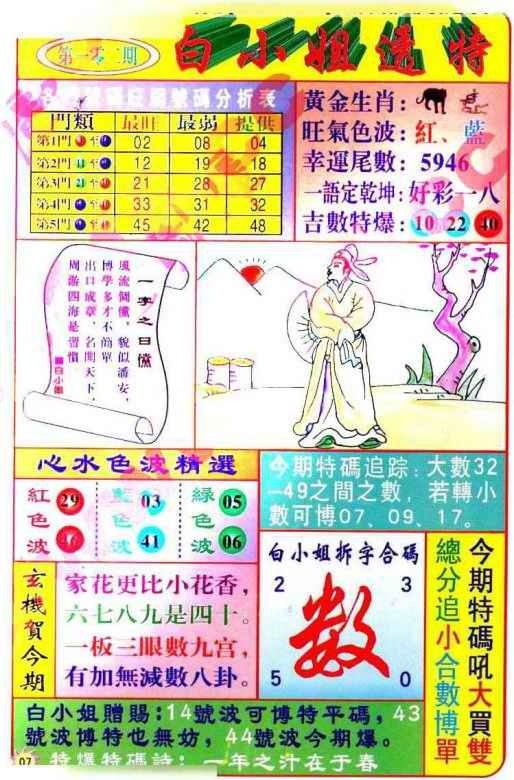 第一零二期
白小姐透特
號碼分析表
門類 最旺 最弱 提供
第1門 至 02 08 04
第2門 至 12 19 18
第3門 至 21 28 27
第4門 至 33 31 32
第5門 至 45 42 48
黃金生肖:
旺氣色波:紅、藍
幸運尾數:5946
一語定乾坤:好彩一八
吉數特爆:10 22 40
一字之曰儻
風流倜儻,貌似潘安,
博學多才不簡單
出口成章,名聞天下,
周游四海是習慣
白小姐
心水色波精選
紅色波 29 46
藍色波 03 41
綠色波 05 06
今期特碼追踪:大數32
-49之間之數,若轉小
數可博07、09、17。
玄機賀今期
家花更比小花香,
六七八九是四十。
一板三眼數九宫,
有加無減數八卦。
白小姐拆字合碼
2 3
數
5 0
今期特碼吼大買雙
總分追小合數博單
白小姐贈賜:14號波可博特平碼,43
號波博特也無妨,44號波今期爆。
07 特爆特碼詩:一年之汁在于春